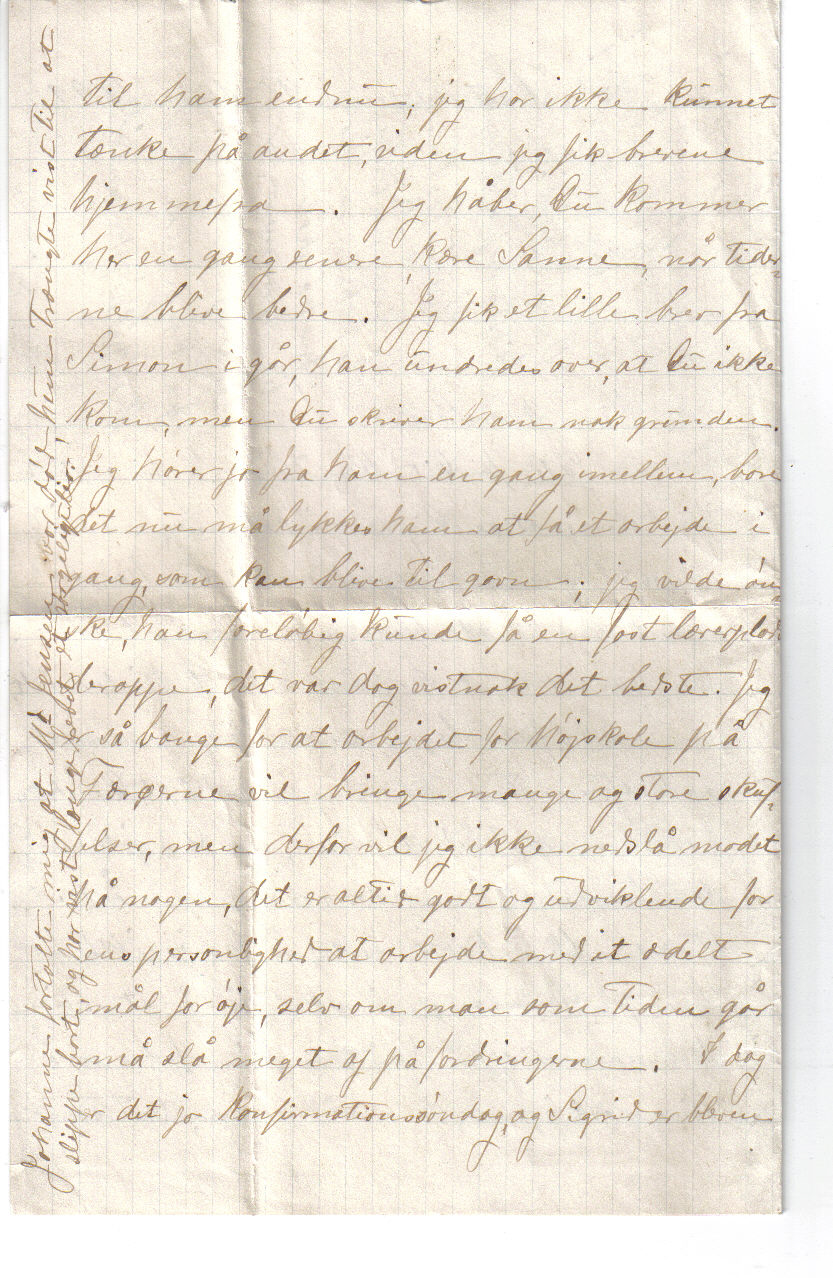 til ham endnu, jeg har ikke kunnet
tænke på andet, siden jeg fik brevene
hjemmefra. Jeg håber, Du kommer
her en gang senere, kære Sanne, når tider-
ne blive bedre. Jeg fik et lille brev fra
Simon i går, han undredes over, at Du ikke
kom, men Du skriver ham nok grunden.
Jeg hører jo fra ham en gang imellem, bare
det nu må lykkes ham at få et arbejde i
gang, som kan blive til gavn; jeg vilde øn-
ske, han foreløbig kunde få en fast lærerplads
deroppe, det var dog vistnok det bedste. Jeg
er så bange for at arbejdet for højskole på
Færøerne vil bringe mange og store skuf-
felser, men derfor vil jeg ikke nedslå modet
på nogen, det er altid godt og udviklende for
ens personlighed at arbejde med et ædelt
mål for øje, selv om man som tiden går
må slå meget af på fordringerne. I dag
er det jo konfirmationssøndag, og Sigrid er bleven
Johanne fortalte mig, at Jensen var død, hun trængte vist til at
slippe bort, og har vist længe